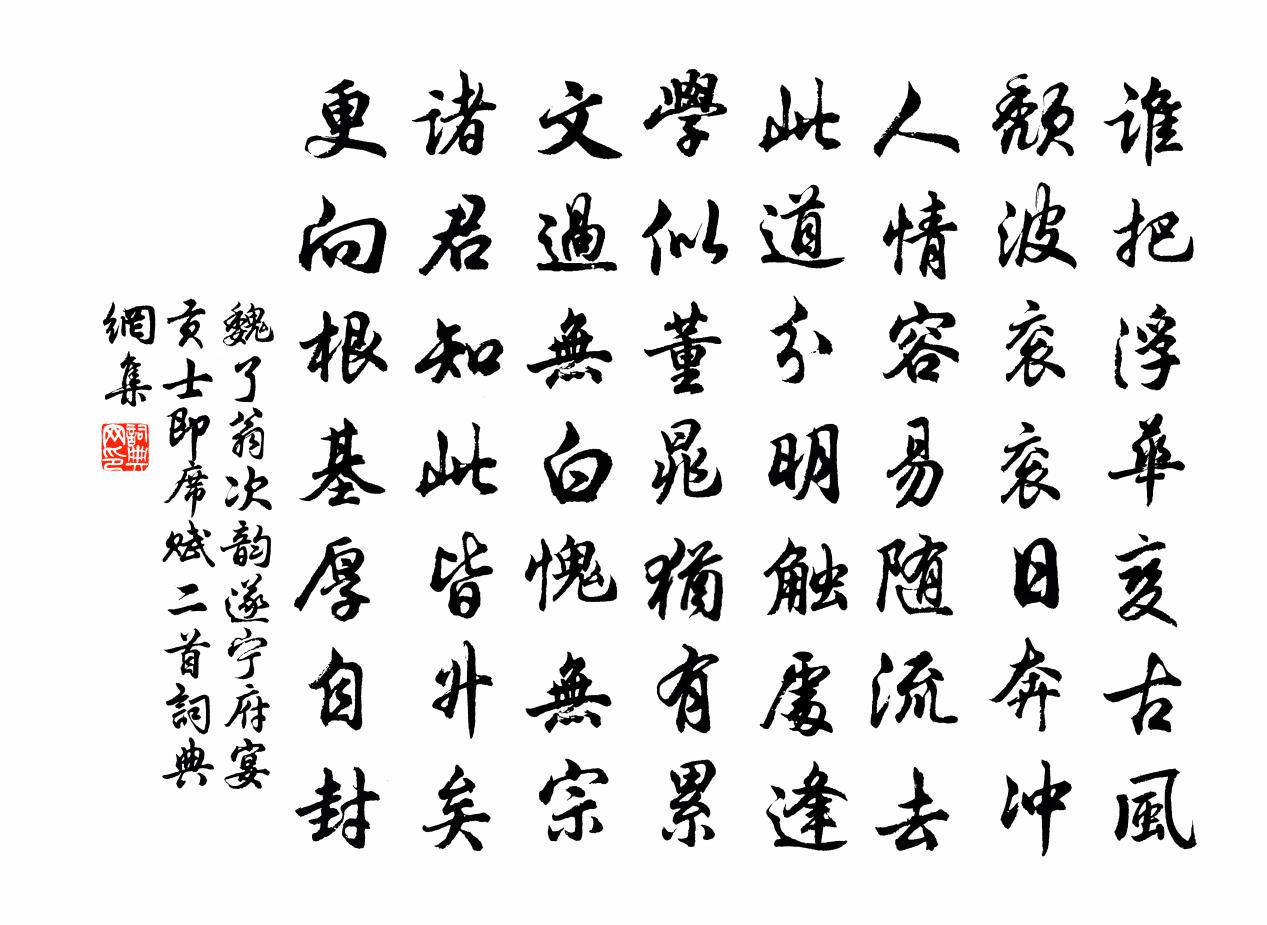 谁把浮華变古風
颓波衮衮日奔冲
人情容易随流去
此道分明触處逢
學似董晁猶有累
文過無白愧無宗
诸君知此皆外矣
更向根基厚自封
魏了翁次韵遂宁府宴
贡士即席赋二首詞典
網集
詞典网印